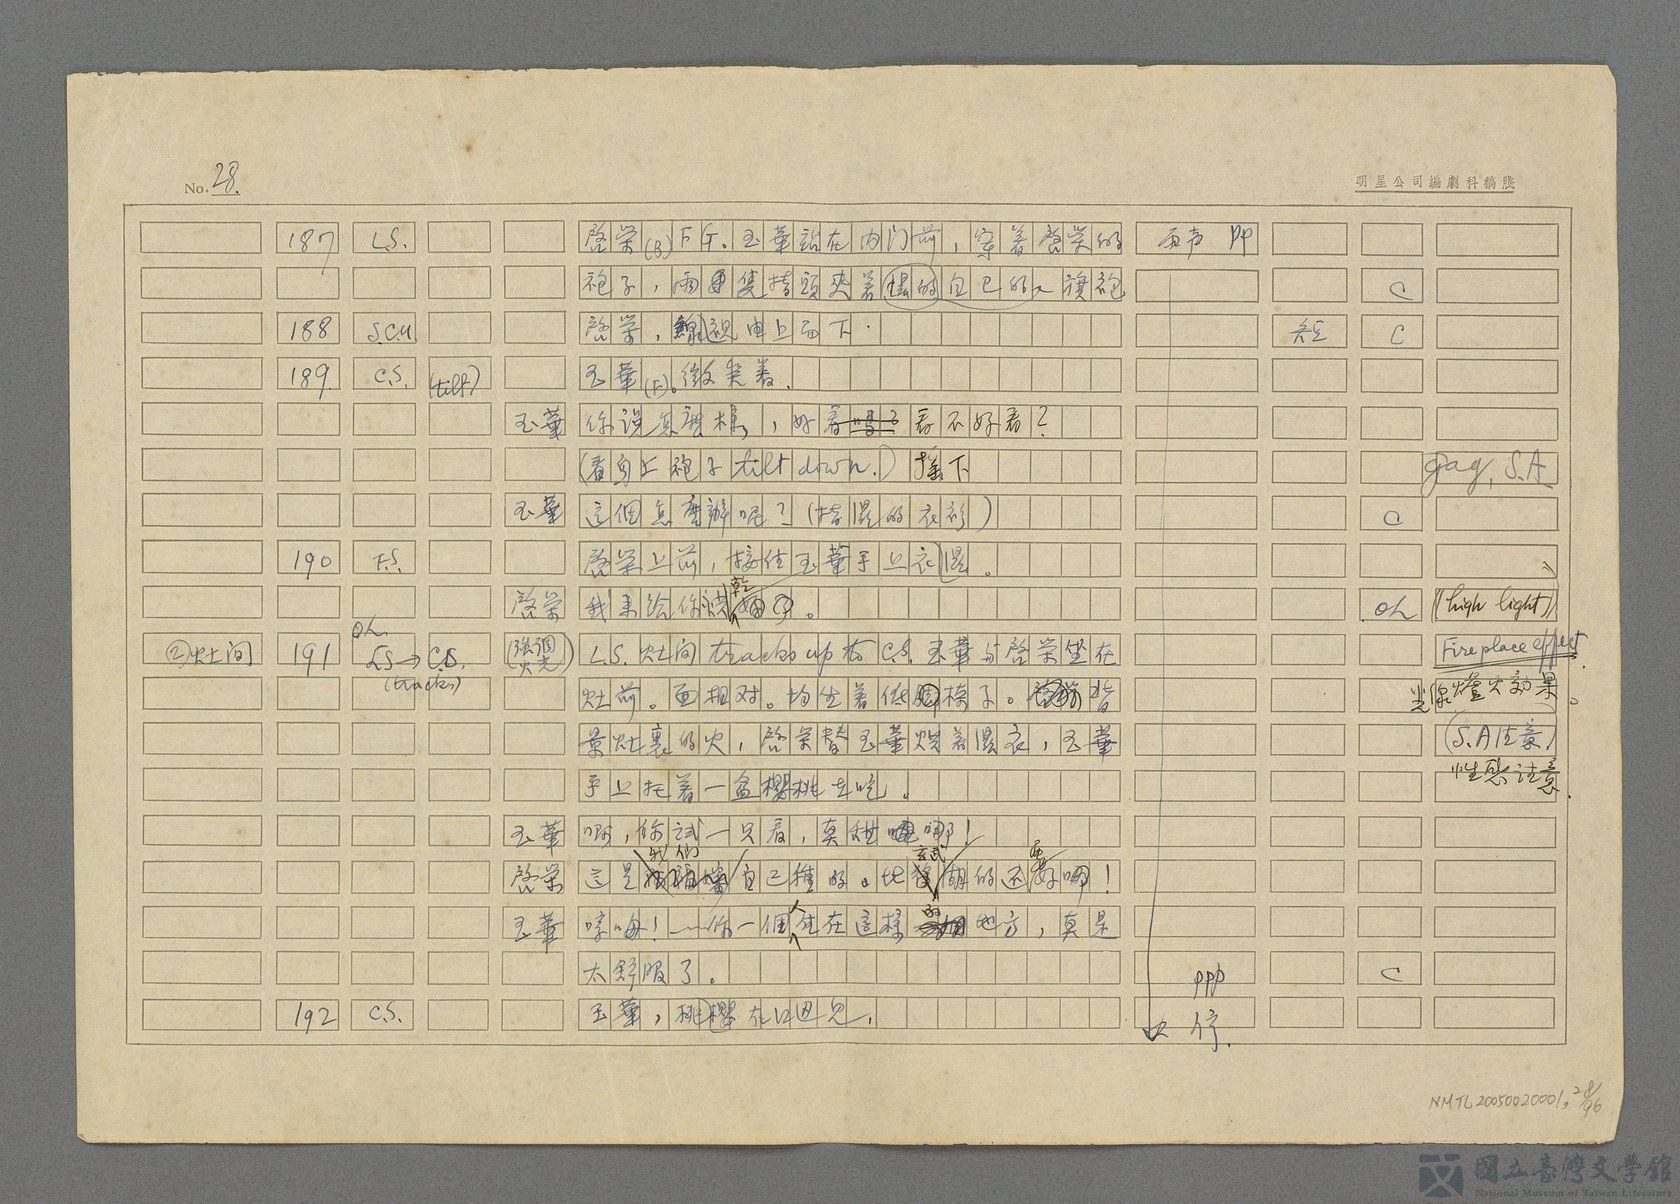 No. 28.
明星公司編劇科稿牋
187 L.S. 啓榮(B) F G. 玉華站在内门前，穿着啓榮的 雨声 PP
袍子，兩隻指頭夾着 自己的 旗袍 C
188 S.C.U 啓榮， 視由上而下. C
189 C.S. (tilt) 玉華(F)。微笑着.
玉華 你说怎 樣，好看 看不好看？
(看身上袍子 tilt down.) 搖下 gag, S.A.
玉華 這個怎麼辦呢？(指濕的衣衫) C
190 F.S. 啓榮上前，接住玉華手上衣濕。
啓榮 我来给你烘乾 。 OL (high light)
OL.
②灶间 191 L.S→C.S. (強調火光) L.S. 灶间 track up 为 C.S. 玉華与啓榮坐在 Fireplace effect
(track) 灶前。面相对。均坐着低 椅子。 背 爐火効果。
景灶裏的火，啓榮替玉華烘着濕衣，玉華 S.A注意
手上托着一盆櫻桃在吃。 性感注意.
玉華 啊，你試一只看，真甜 哪！
我们 玄武 要
啓榮 這是 自己種的。比 湖的还 好哪！
人 的
玉華 咳呦！——你一個 住在這樣 地方，真是
太舒服了。 ppp C
192 C.S. 玉華，桃櫻在口边兒. 停.
NMTL20050020001, 28/96
國立臺灣文學館
National Museum of Taiwan Literature